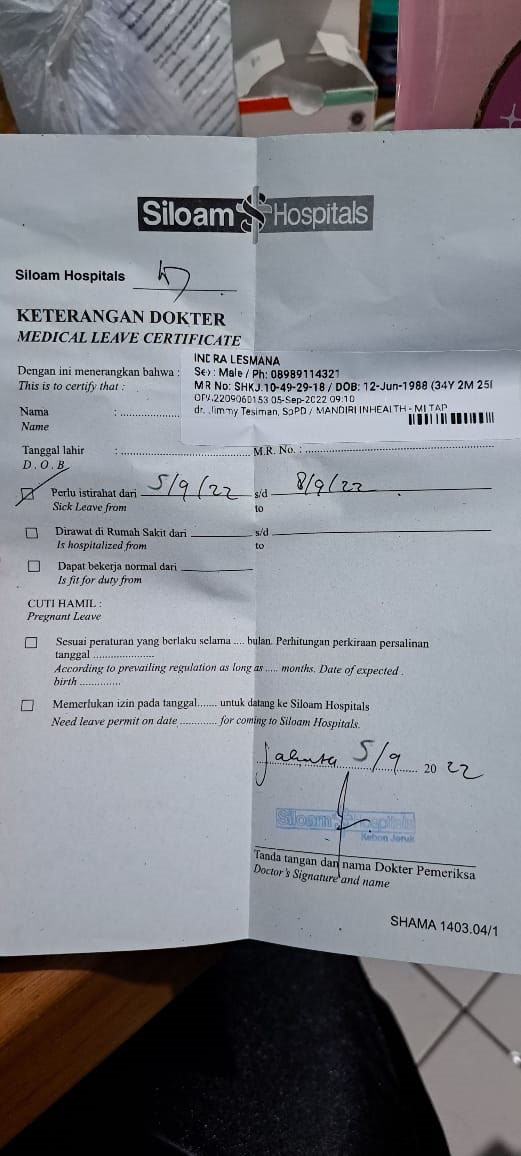 Siloam Hospitals
Siloam Hospitals
KETERANGAN DOKTER
MEDICAL LEAVE CERTIFICATE
Dengan ini menerangkan bahwa :
This is to certify that :
INDRA LESMANA
Sex : Male / Ph: 08989114321
MR No: SHKJ.10-49-29-18 / DOB: 12-Jun-1988 (34Y 2M 25
OPA2209060153 05-Sep-2022 09:10
dr. Jimmy Tesiman, SpPD / MANDIRI INHEALTH - MITAP
Nama :
Name
Tanggal lahir : M.R. No. :
D.O.B
Perlu istirahat dari 5/9/22 s/d 8/9/22
Sick Leave from to
Dirawat di Rumah Sakit dari s/d
Is hospitalized from to
Dapat bekerja normal dari
Is fit for duty from
CUTI HAMIL :
Pregnant Leave
Sesuai peraturan yang berlaku selama .... bulan. Perhitungan perkiraan persalinan
tanggal ....................
According to prevailing regulation as long as ..... months. Date of expected .
birth .............
Memerlukan izin pada tanggal....... untuk datang ke Siloam Hospitals
Need leave permit on date ............ for coming to Siloam Hospitals.
Jakarta 5/9 20 22
Siloam Hospitals
Kebon Jeruk
Tanda tangan dan nama Dokter Pemeriksa
Doctor's Signature and name
SHAMA 1403.04/1